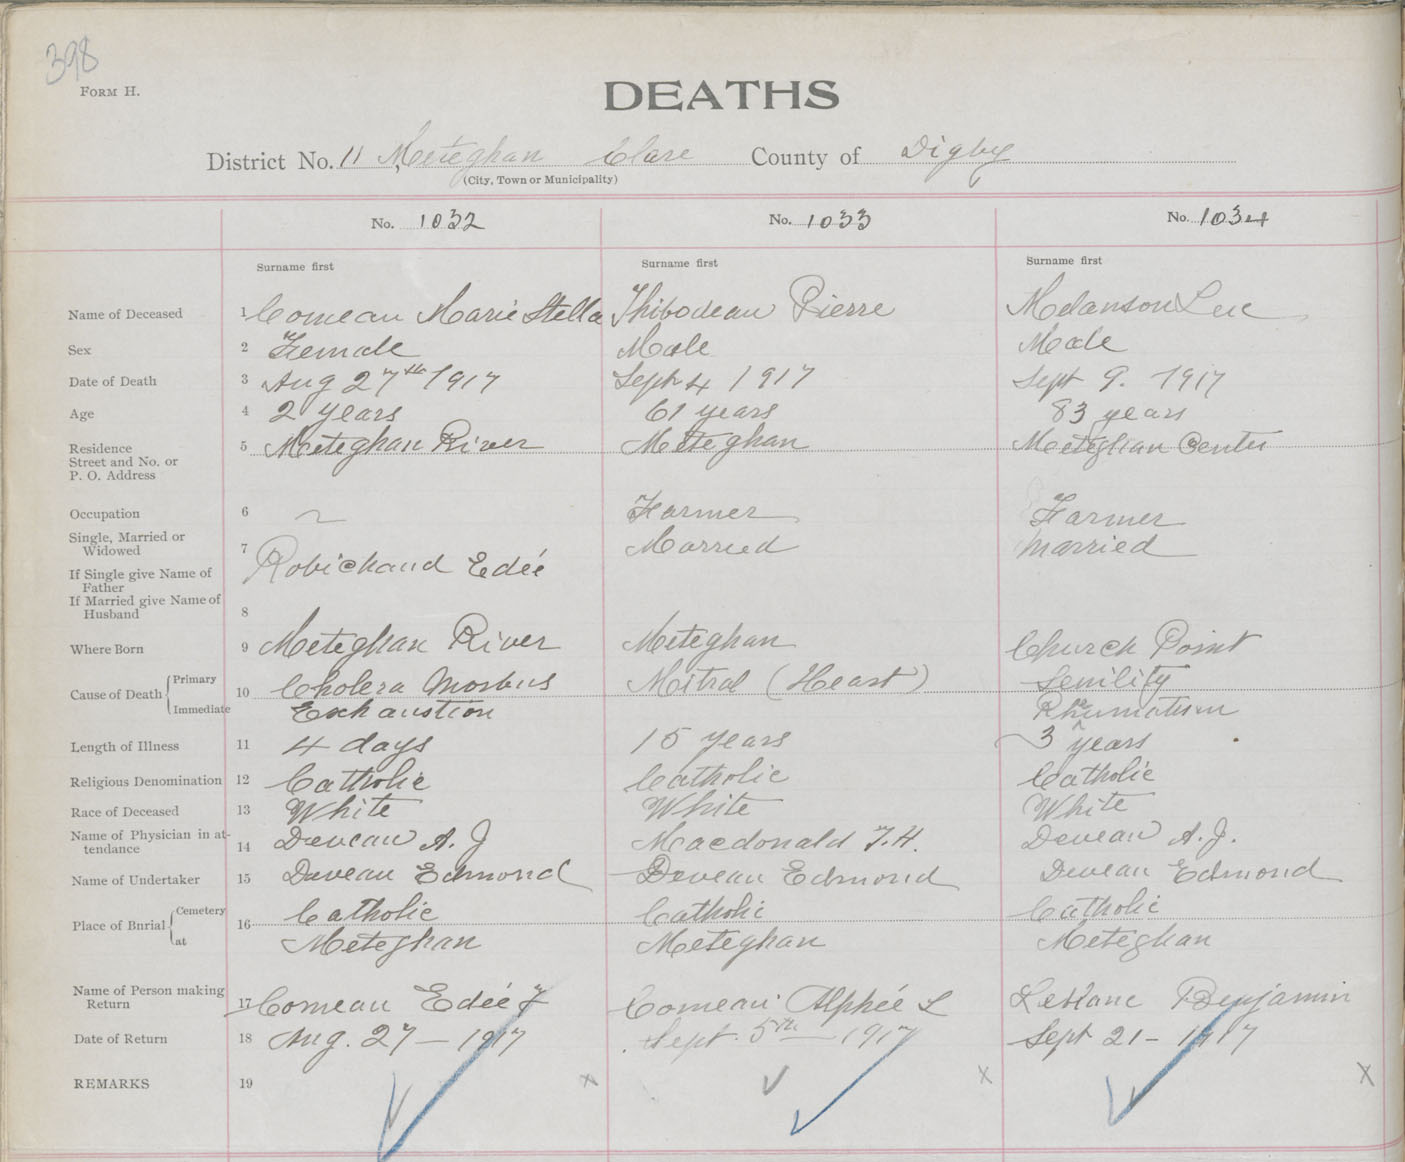 398
FORM H.
DEATHS
District No. 11, Meteghan Clare County of Digby
(City, Town or Municipality)
No. 1032 No. 1033 No. 1034
Surname first Surname first Surname first
Name of Deceased 1 Comeau Marie Stella Thibodeau Pierre Melanson Luc
Sex 2 Female Male Male
Date of Death 3 Aug 27th 1917 Sept 4 1917 Sept 9. 1917
Age 4 2 years 61 years 83 years
Residence 5 Meteghan River Meteghan Meteghan Center
Street and No. or
P. O. Address
Occupation 6 Farmer Farmer
Single, Married or
Widowed 7 Married married
If Single give Name of Robichaud Edée
Father
If Married give Name of
Husband 8
Where Born 9 Meteghan River Meteghan Church Point
Cause of Death Primary 10 Cholera Morbus Mitral (Heart) Senility
Immediate Exhaustion Rheumatism
Length of Illness 11 4 days 15 years 3 years
Religious Denomination 12 Catholic Catholic Catholic
Race of Deceased 13 White White White
Name of Physician in at-
tendance 14 Deveau A. J Macdonald T. H. Deveau A. J.
Name of Undertaker 15 Deveau Edmond Deveau Edmond Deveau Edmond
Place of Burial Cemetery 16 Catholic Catholic Catholic
at Meteghan Meteghan Meteghan
Name of Person making
Return 17 Comeau Edée F Comeau Alphée L LeBlanc Benjamin
Date of Return 18 Aug. 27 - 1917 Sept. 5th - 1917 Sept 21 - 1917
REMARKS 19 x x x